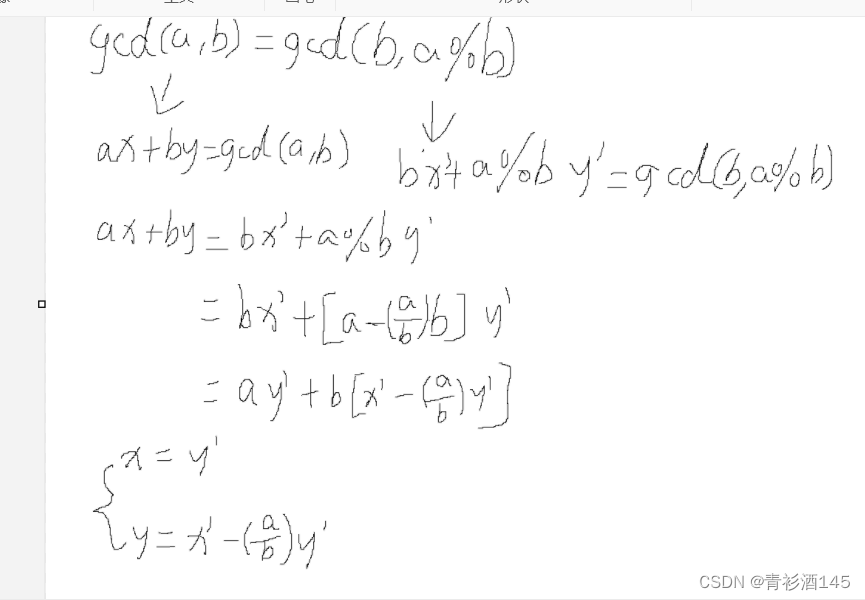 gcd(a,b)=gcd(b,a%b)
ax+by=gcd(a,b) bx'+a%b y'=gcd(b,a%b)
ax+by=bx'+a%b y'
=bx'+[a-(a/b)b] y'
=ay'+b[x'-(a/b)y']
{x=y'
y=x'-(a/b)y'
CSDN @青衫酒145